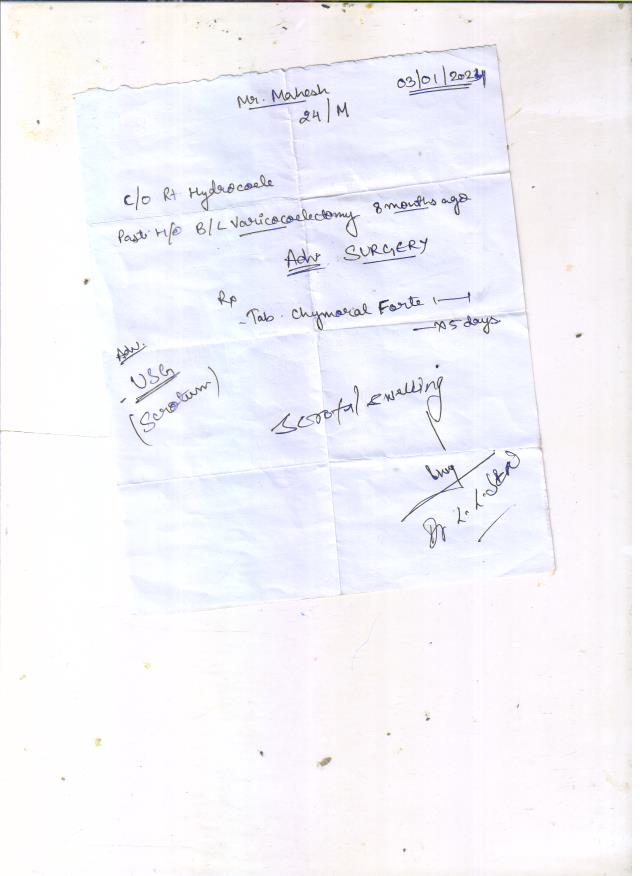 Mr. Mahesh
03/01/2024
24/M
C/O Rt Hydrocoele
Past H/O B/L Varicocoelectomy 8 months ago
Adv. SURGERY
Rp
- Tab. Chymoral Forte 1—1
—x 5 days
Adv.
- USG
(Scrotum)
Scrotal swelling
Dr. L. L.